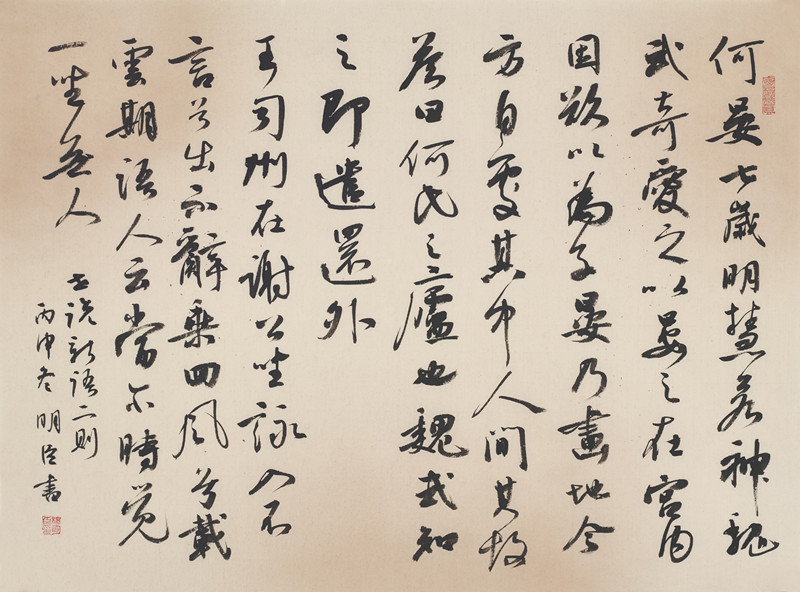 何晏七歲明慧若神魏
武奇愛之以晏之在宮內
因欲以為子晏乃畫地令
方自處其中人間其故
答曰何氏之廬也魏武知
之即遣還外
王司州在謝公坐詠入不
言兮出不辭乘回風兮載
雲期語人云當爾時覺
一坐無人
世說新語二則
丙申冬明臣書